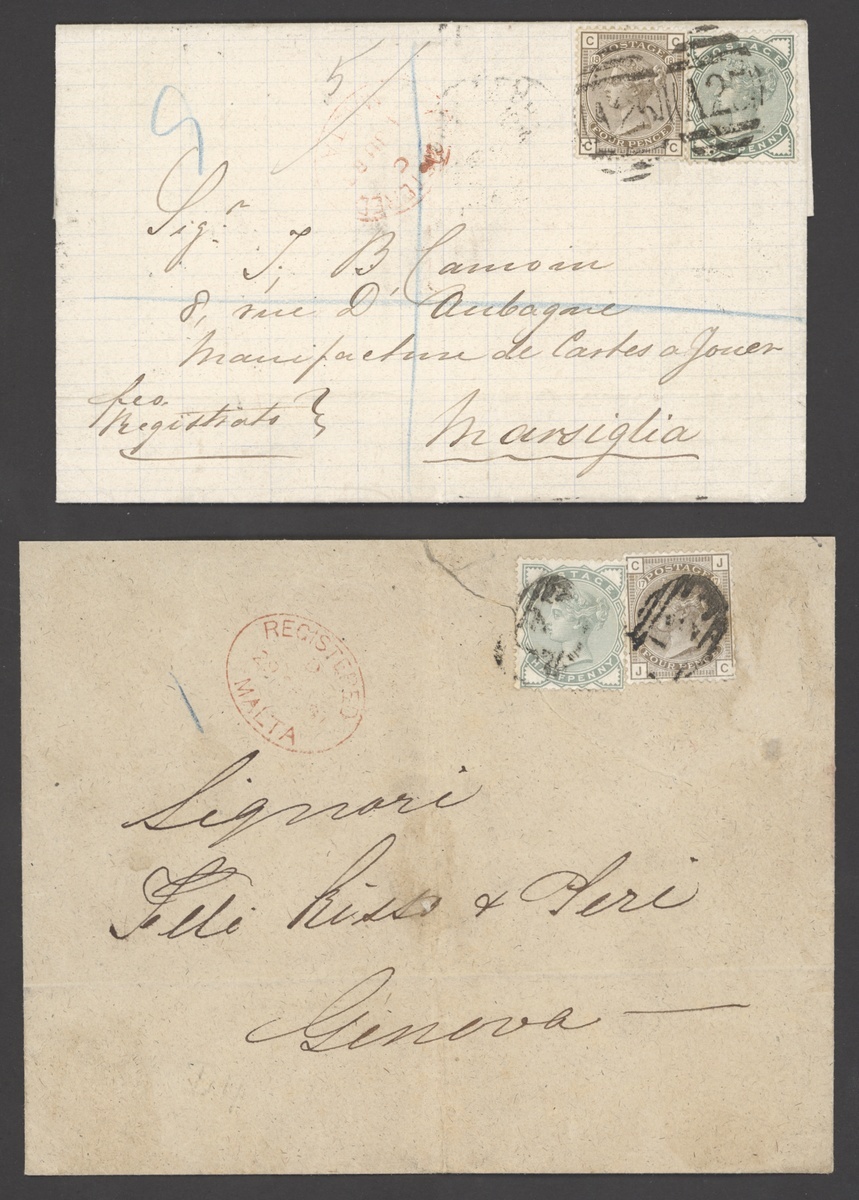 5
C C
POSTAGE
18 18
FOUR PENCE
C C
POSTAGE
HALFPENNY
A25 A25
Sigr.
J. B. Camoin
8, rue D'Aubagne
Manufacture de Cartes a Jouer
Registrato
Marsiglia
POSTAGE
HALFPENNY
C J
POSTAGE
17
FOUR PENCE
J C
REGISTERED
D
MALTA
Signori
Felli Risso & Peri
Genova